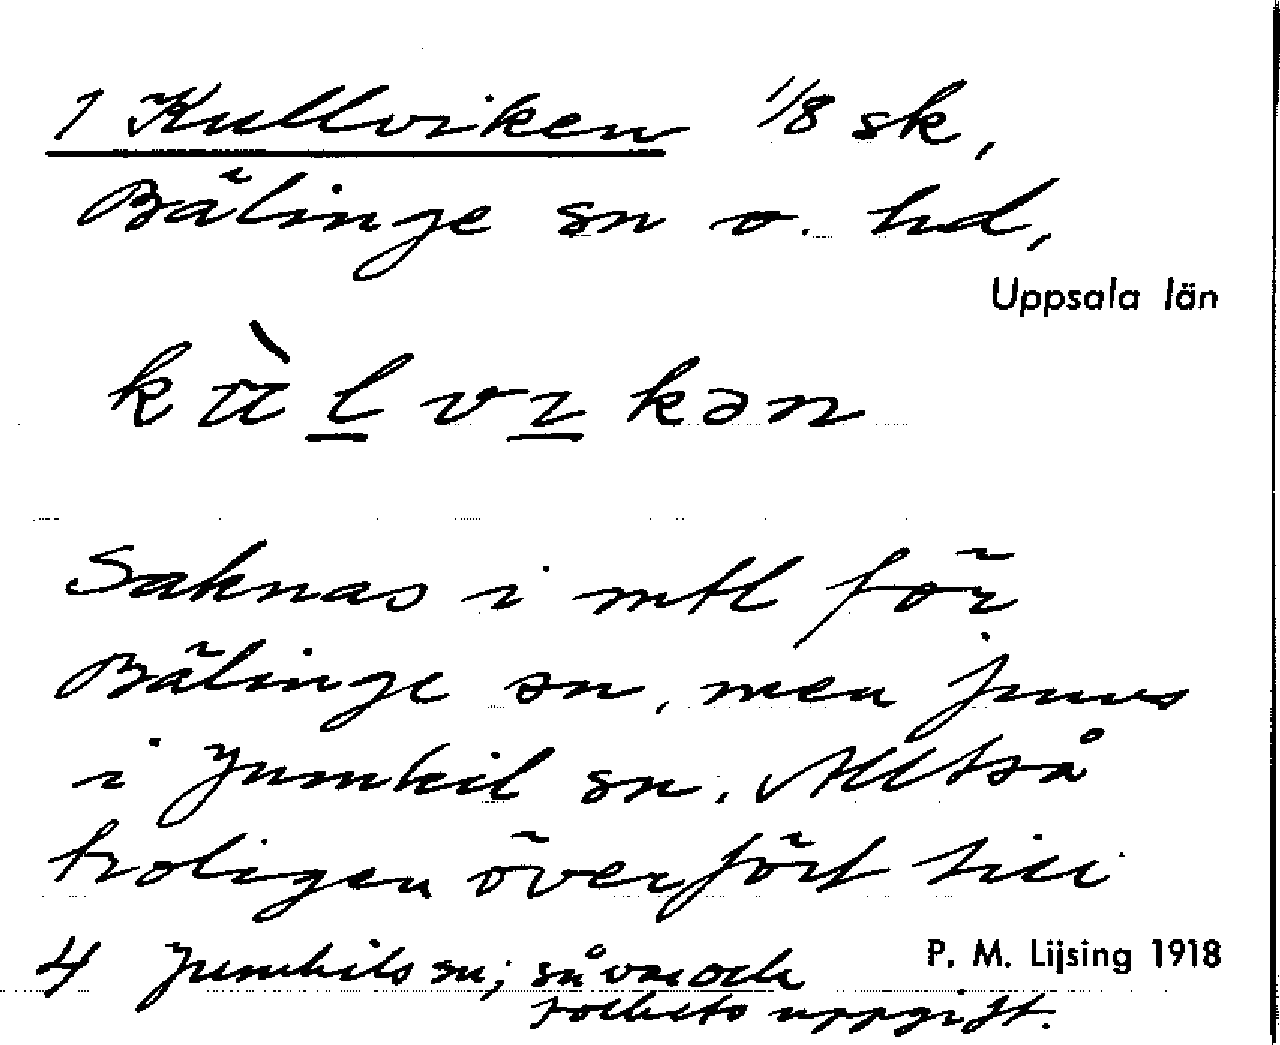 1 Kullviken 1/8 sk,
Bälinge sn o. hd,
Uppsala län
kùlvıkən
Saknas i mtl för
Bälinge sn, men finns
i Jumkil sn. Alltså
troligen överfört till
4 Jumkils sn; så var och
folkets uppgift.
P. M. Lijsing 1918